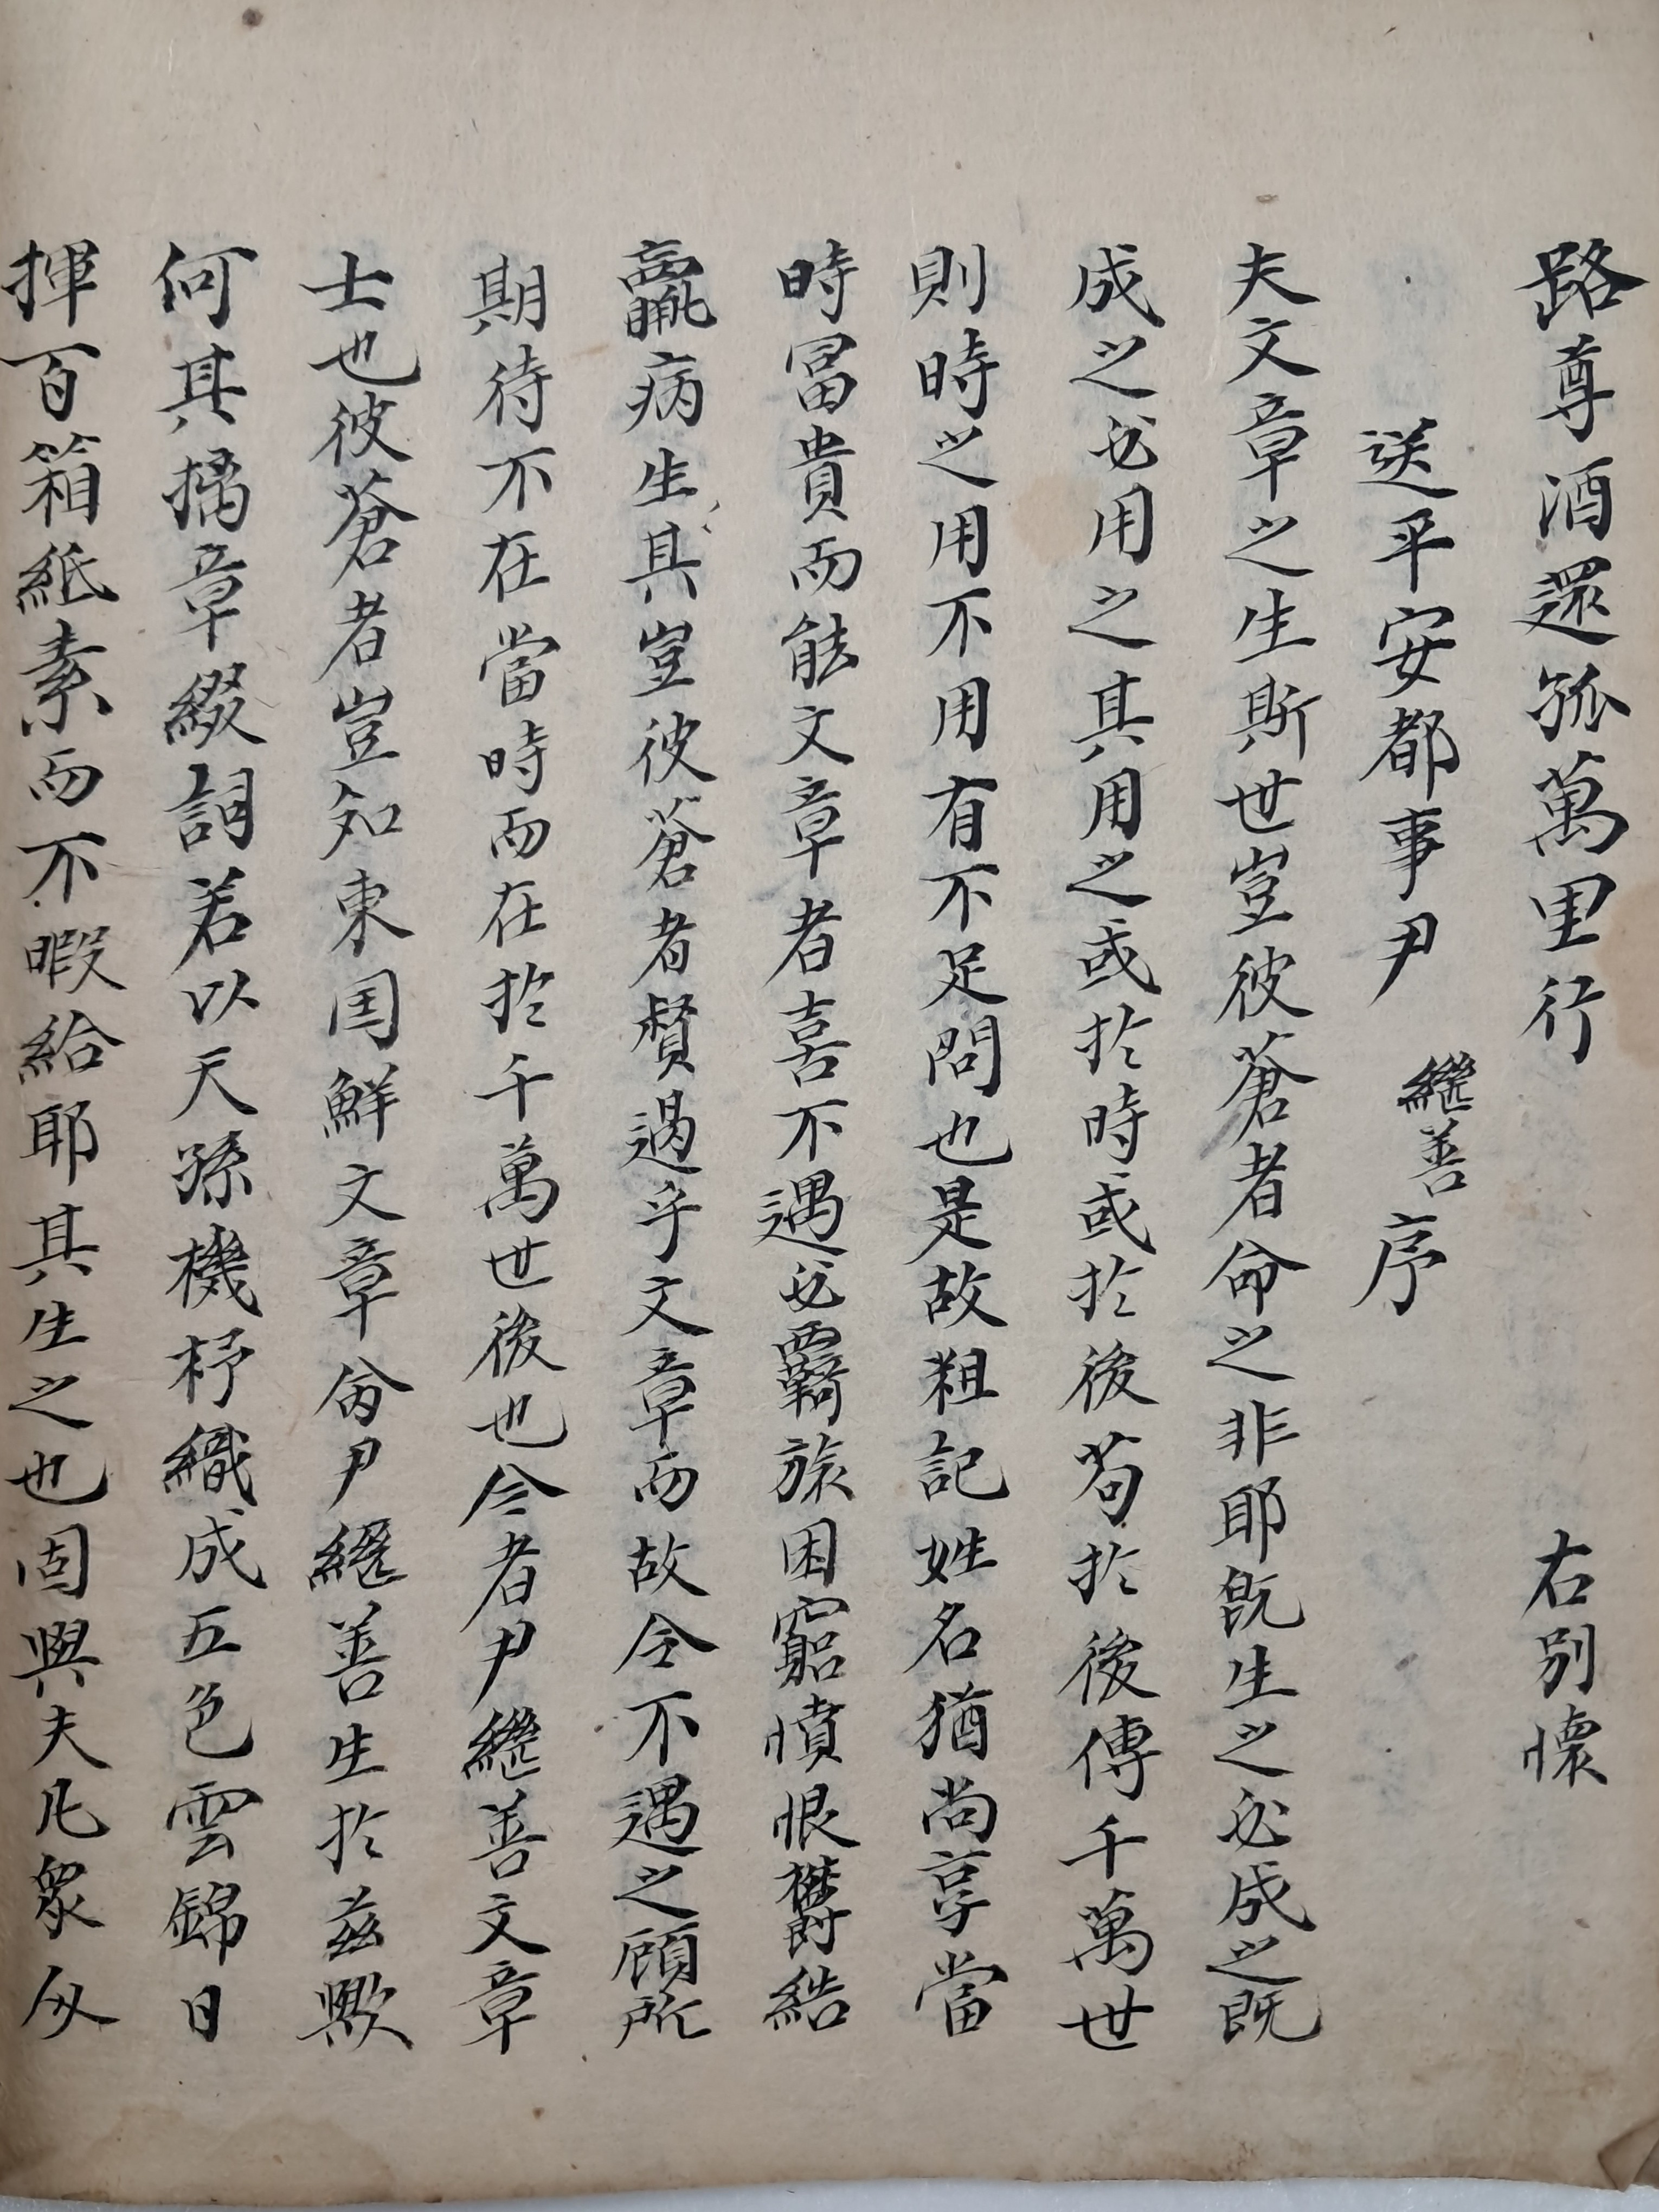 路尊酒還孤萬里行 右別懷
送平安都事尹繼善序
夫文章之生斯世豈彼蒼者命之非耶既生之必成之既
成之必用之其用之或於時或於後苟於後傳千萬世
則時之用不用有不足問也是故粗記姓名猶尚享當
時冨貴而能文章者喜不遇必覊旅困窮憤恨欝結
羸病生具豈彼蒼者賛過乎文章而故令不遇之顧所
期待不在當時而在於千萬世後也今者尹繼善文章
士也彼蒼者豈知東国鮮文章尙尹繼善生於玆歟
何其摛章綴詞若以天孫機杼織成五色雲錦日
揮百箱紙素而不暇給耶其生之也固與夫凡衆